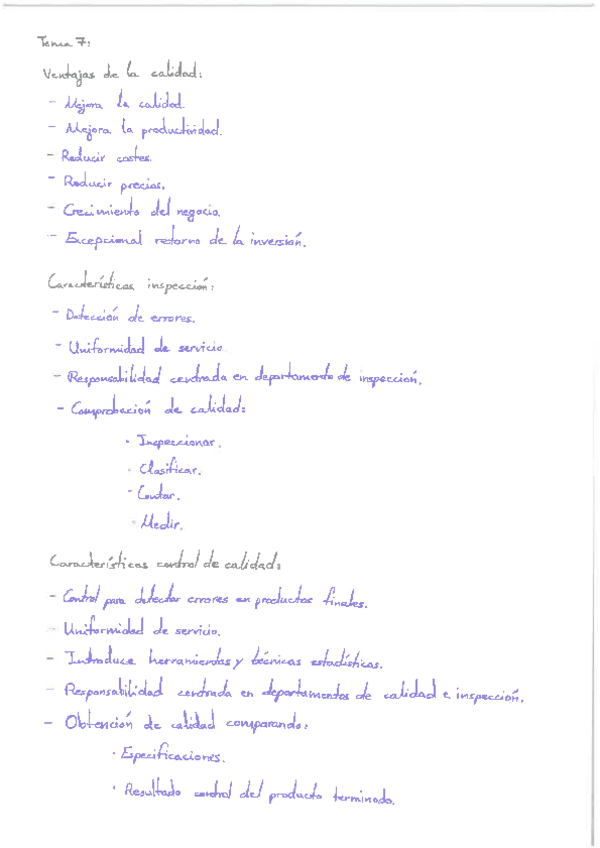 Tema 7:
Ventajas de la calidad:
- Mejora la calidad.
- Mejora la productividad.
- Reducir costes.
- Reducir precios.
- Crecimiento del negocio.
- Excepcional retorno de la inversión.
Características inspección:
- Detección de errores.
- Uniformidad de servicio
- Responsabilidad centrada en departamento de inspección.
- Comprobación de calidad:
· Inspeccionar.
· Clasificar.
· Contar.
· Medir.
Características control de calidad:
- Control para detectar errores en productos finales.
- Uniformidad de servicio.
- Introduce herramientas y técnicas estadísticas.
- Responsabilidad centrada en departamentos de calidad e inspección.
- Obtención de calidad comparando:
· Especificaciones.
· Resultado control del producto terminado.